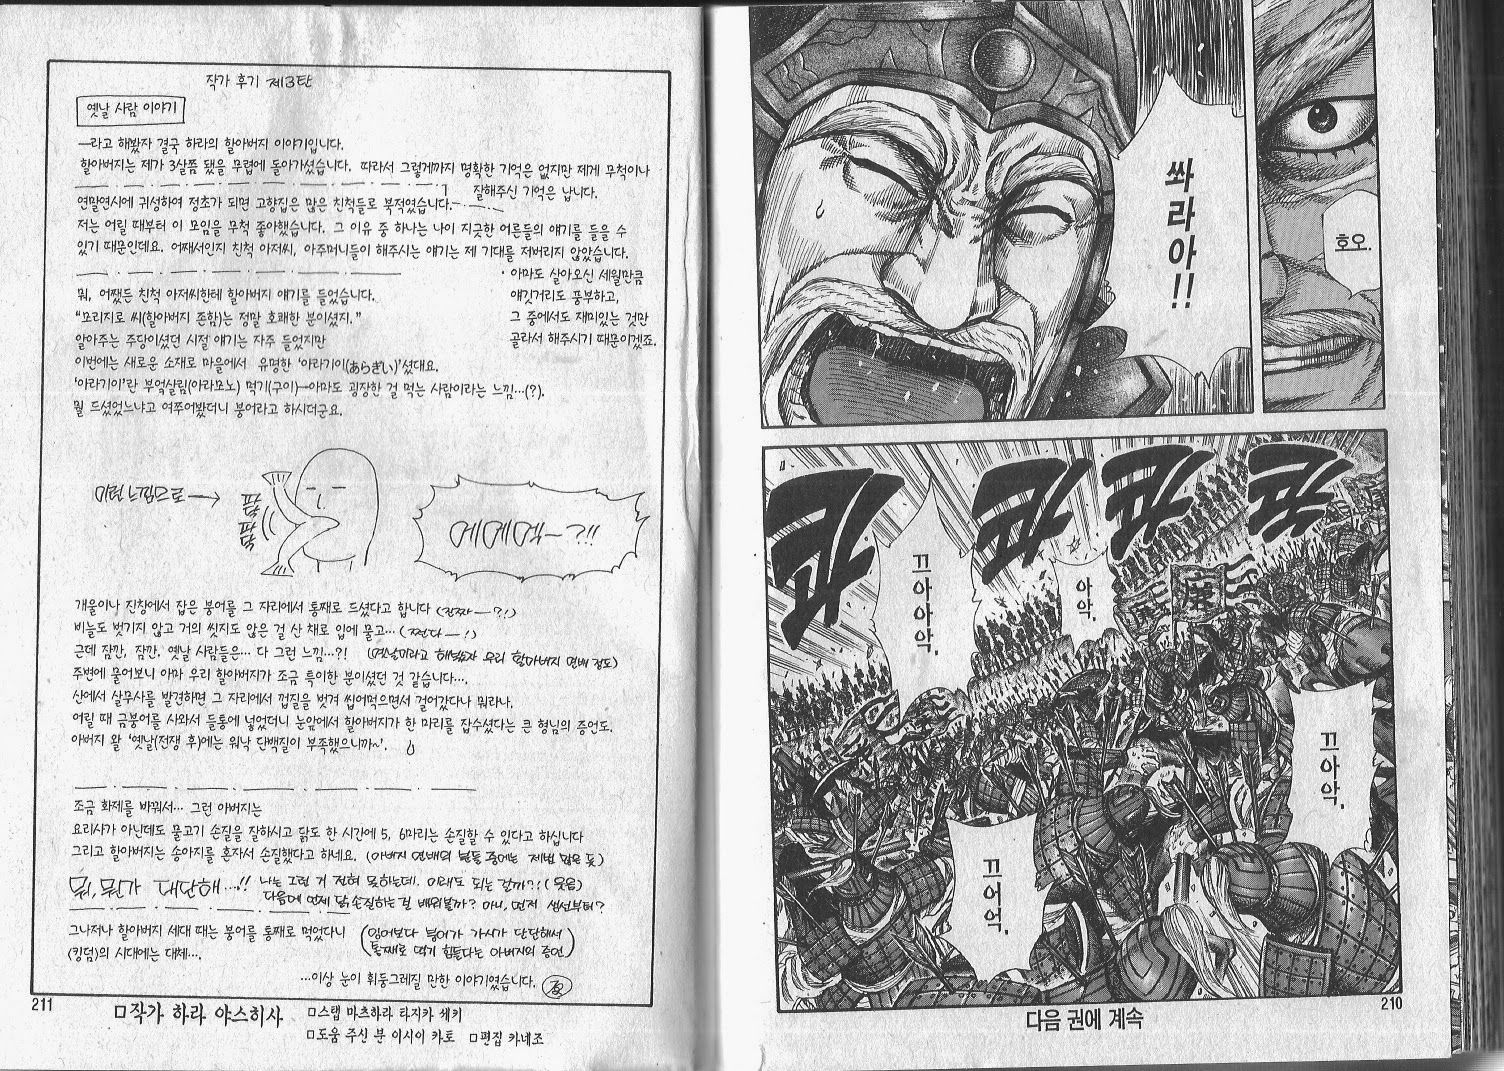 작가 후기 제3탄
옛날 사람 이야기
—라고 해봤자 결국 하라의 할아버지 이야기입니다.
할아버지는 제가 3살쯤 됐을 무렵에 돌아가셨습니다. 따라서 그렇게까지 명확한 기억은 없지만 제게 무척이나
잘해주신 기억은 납니다.
연말연시에 귀성하여 정초가 되면 고향집은 많은 친척들로 북적였습니다.
저는 어릴 때부터 이 모임을 무척 좋아했습니다. 그 이유 중 하나는 나이 지긋한 어른들의 얘기를 들을 수
있기 때문인데요. 어째서인지 친척 아저씨, 아주머니들이 해주시는 얘기는 제 기대를 저버리지 않았습니다.
·아마도 살아오신 세월만큼
얘깃거리도 풍부하고,
그 중에서도 재미있는 것만
골라서 해주시기 때문이겠죠.
뭐, 어쨌든 친척 아저씨한테 할아버지 얘기를 들었습니다.
"꼬리지로 씨(할아버지 존함)는 정말 호쾌한 분이셨지."
알아주는 주당이셨던 시절 얘기는 자주 들었지만
이번에는 새로운 소재로 마을에서 유명한 '아라기이(あらぎい)'셨대요.
'아라기이'란 부엌살림(아라모노) 먹기(구이)—아마도 굉장한 걸 먹는 사람이라는 느낌…(?).
뭘 드셨었느냐고 여쭈어봤더니 붕어라고 하시더군요.
이런 느낌으로→
팍팍
팍팍
에에엑—?!!
개울이나 진창에서 잡은 붕어를 그 자리에서 통째로 드셨다고 합니다 (진짜—?!)
비늘도 벗기지 않고 거의 씻지도 않은 걸 산 채로 입에 물고… (쩐다—!)
근데 잠깐, 잠깐, 옛날 사람들은… 다 그런 느낌…?! (옛날이라고 해봤자 우리 할아버지 연배 정도)
주변에 물어보니 아마 우리 할아버지가 조금 특이한 분이셨던 것 같습니다….
산에서 살무사를 발견하면 그 자리에서 껍질을 벗겨 씹어먹으면서 걸어갔다나 뭐라나.
어릴 때 금붕어를 사와서 들통에 넣었더니 눈앞에서 할아버지가 한 마리를 잡수셨다는 큰 형님의 증언도.
아버지 왈 '옛날(전쟁 후)에는 워낙 단백질이 부족했으니까~'.
조금 화제를 바꿔서… 그런 아버지는
요리사가 아닌데도 물고기 손질을 잘하시고 닭도 한 시간에 5, 6마리는 손질할 수 있다고 하십니다
그리고 할아버지는 송아지를 혼자서 손질했다고 하네요. (아버지 연배의 분들 중에는 제법 많은 듯)
뭐, 뭔가 대단해…!! 나는 그런 거 전혀 못하는데. 이래도 되는 걸까?! (웃음)
다음에 언제 닭 손질하는 걸 배워볼까? 아니, 먼저 생선부터?
그나저나 할아버지 세대 때는 붕어를 통째로 먹었다니
(킹덤)의 시대에는 대체….
(잉어보다 붕어가 가시가 단단해서
통째로 먹기 힘들다는 아버지의 증언)
…이상 눈이 휘둥그레질 만한 이야기였습니다.
211
□작가 하라 야스히사
□스탭 마츠하라 타지카 쉐키
□도움 주신 분 이시이 카토 □편집 카네조
호오.
쏴라아!!
콰
콰
콰
콰
아악,
끄아아악,
끄아악,
끄어억,
다음 권에 계속
210